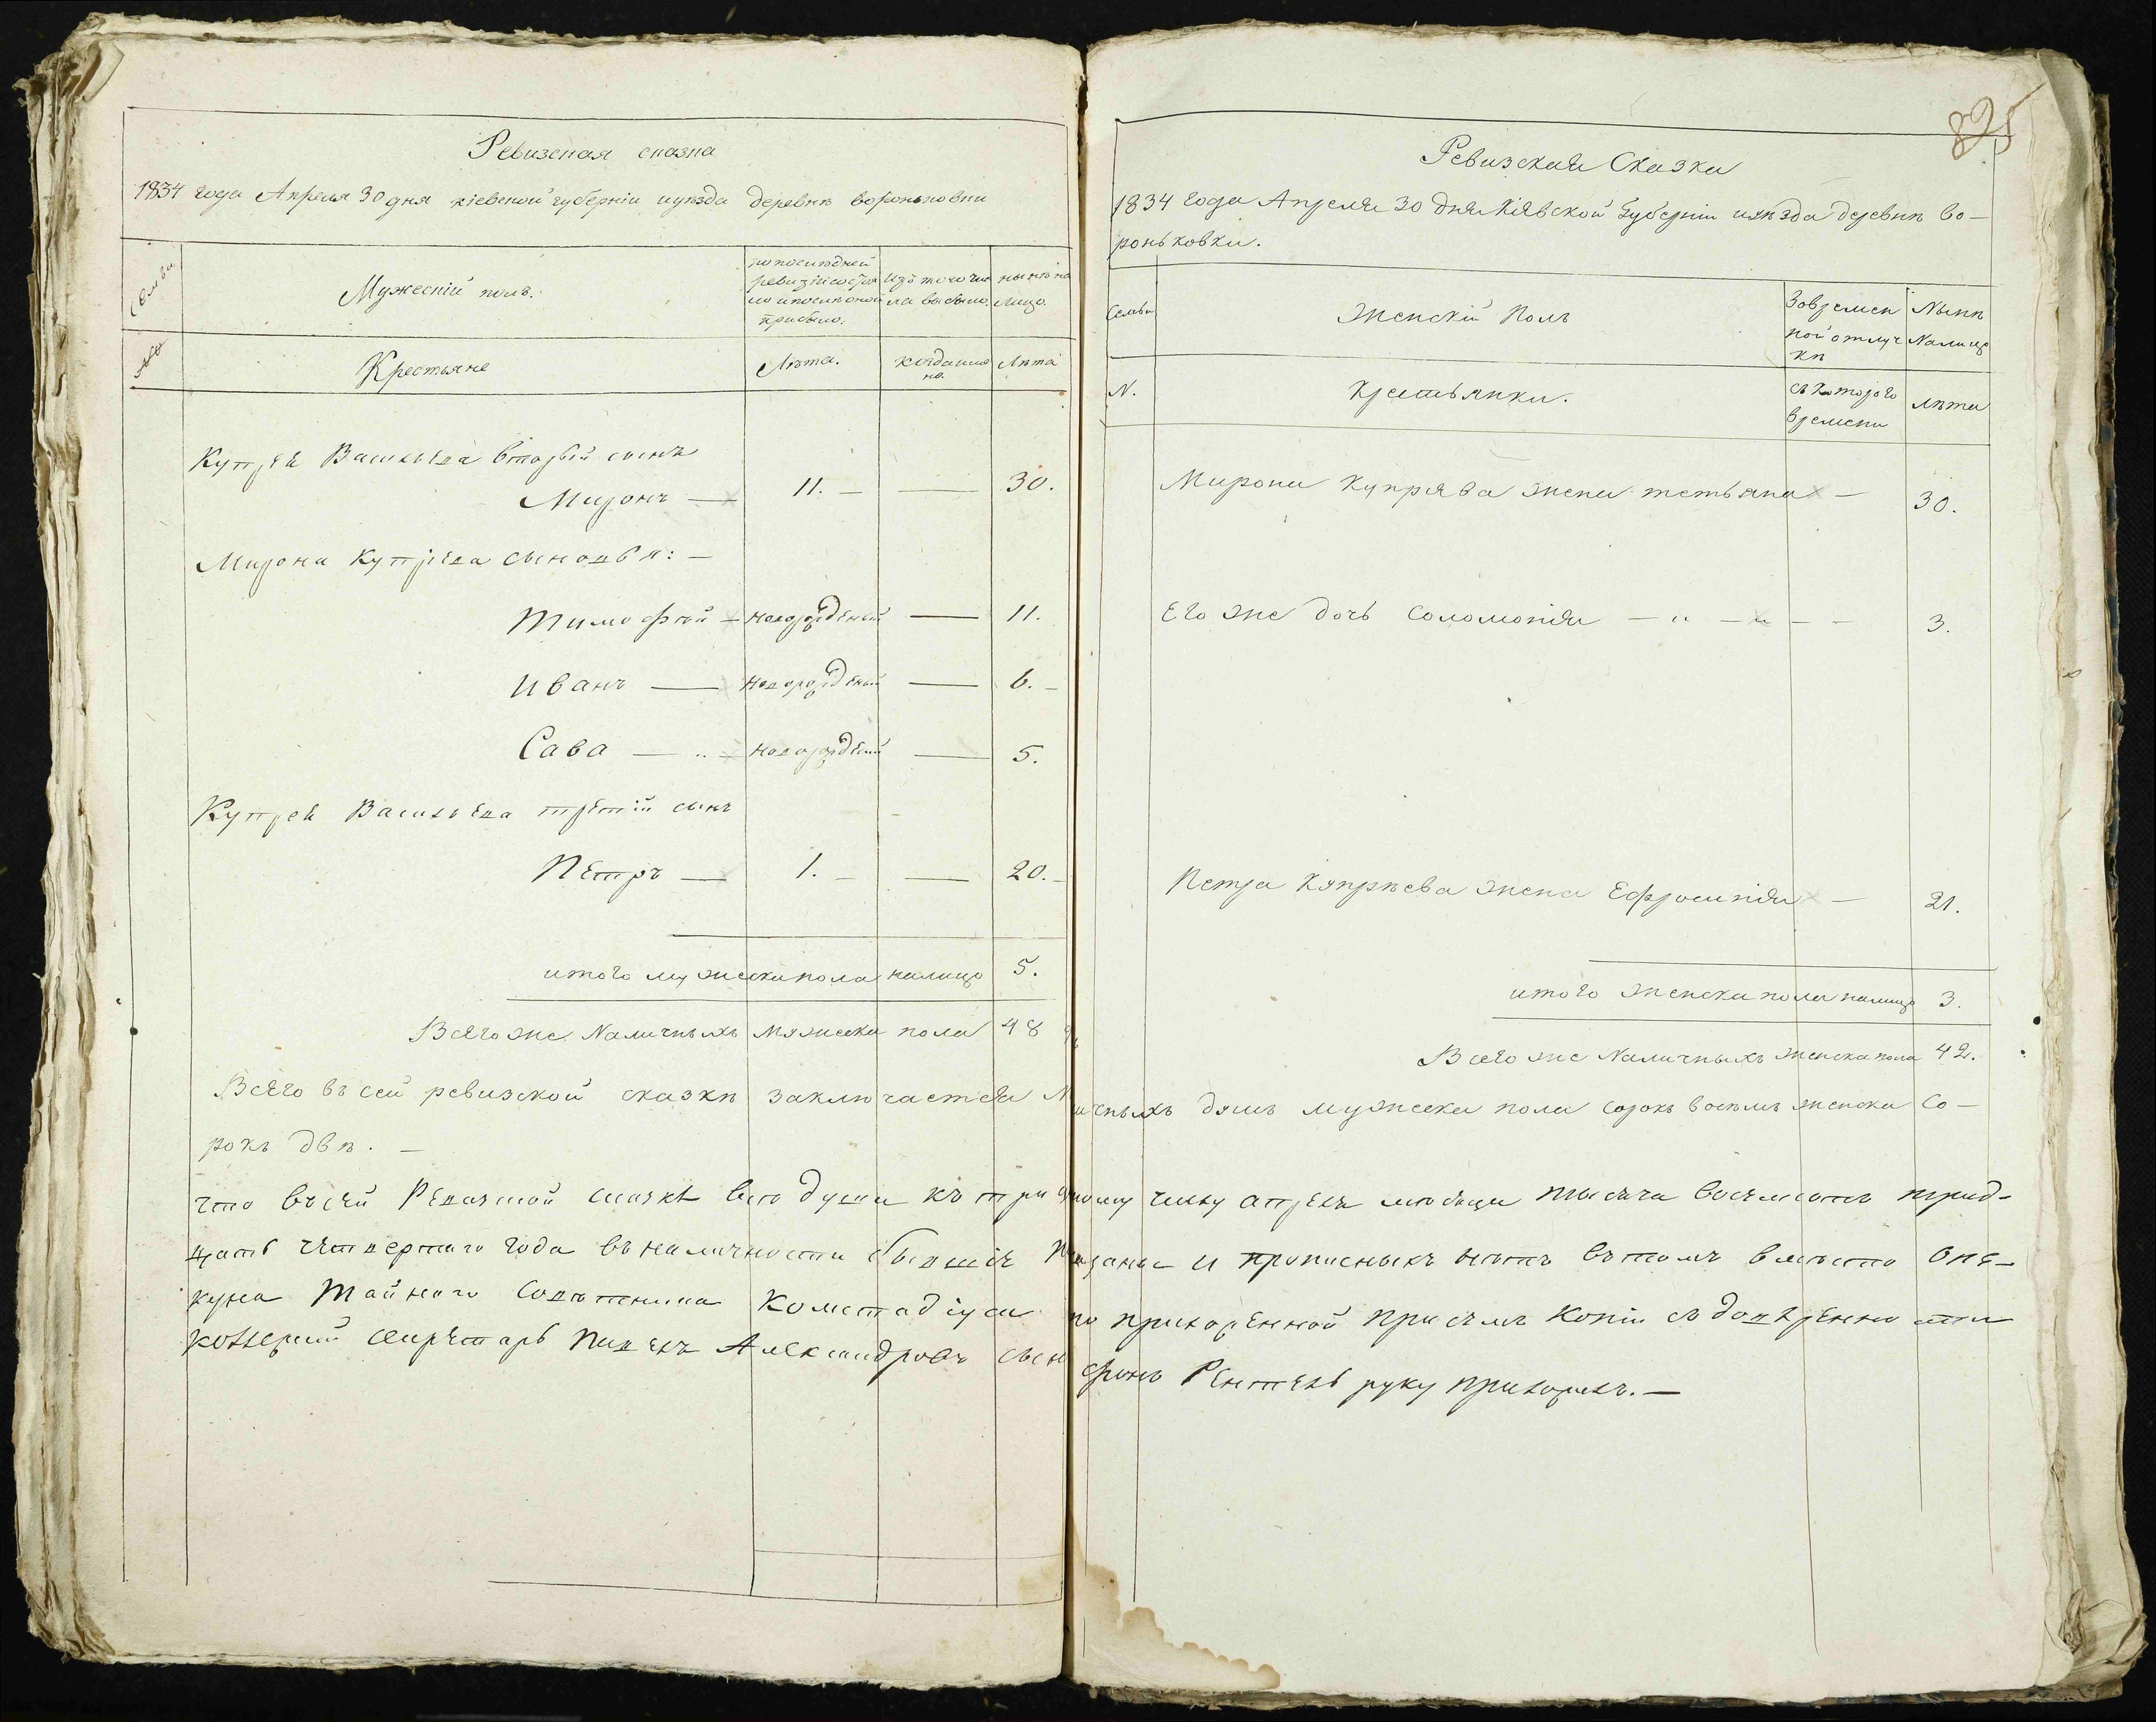 Ревизская сказка
1834 года Апреля 30 дня кіевской губерніи иуѣзда деревнѣ вороньковки
Семьи
Мужескій полъ.
попослѣдней
ревизіи состоя
ло и послѣ оной
прибыло.
Изъ того чис
ла выбыло.
нынѣ на
лицо.
№
Крестьяне
Лѣта.
когда имен
но.
Лѣта
Купрея Васильева вторый сынъ
Миронъ — 11. — — 30.
Мирона Купрѣева сыновья: —
Тимофей — новорожденный — 11.
Иванъ — новорожденый — 6. —
Сава — новорожденый — 5.
Купрея Васильева третій сынъ
Петръ — 1. — — 20. —
итого мужеска пола налицо 5.
Всего же Наличныхъ мужеска пола 48
825
Ревизская Сказка
1834 года Апреля 30 дня Кіявской Губерніи иуѣзда деревнѣ во-
роньковки.
Семьи
Женскій Полъ
Вовремен
ной отлуч
кѣ
Нынѣ
Налицо
N.
Крестьянки.
съ Котораго
времени
лѣта
Мирона Купрява жена тетьяна — 30.
Его же дочь соломонія — „ — — — 3.
Петра Купрѣева жена Ефросинія — 21.
итого женска пола налицо 3.
Всего же Наличныхъ женска пола 42.
Всего въ сей ревизской сказкѣ заключается Наличныхъ душъ мужеска пола сорокъ восемъ женска со-
рокъ двѣ. —
что въ сей Ревизской сказке все души къ тридцатому числу апреля месяца тысяча восемсотъ трид-
цать четвертаго года въ наличности бывшіе показаны и прописныхъ нѣтъ въ томъ вместо опе-
куна Тайнаго Советника по приложенной при семъ копіи съ доверенности
секретарь Павелъ Александровъ сынъ руку приложилъ. —